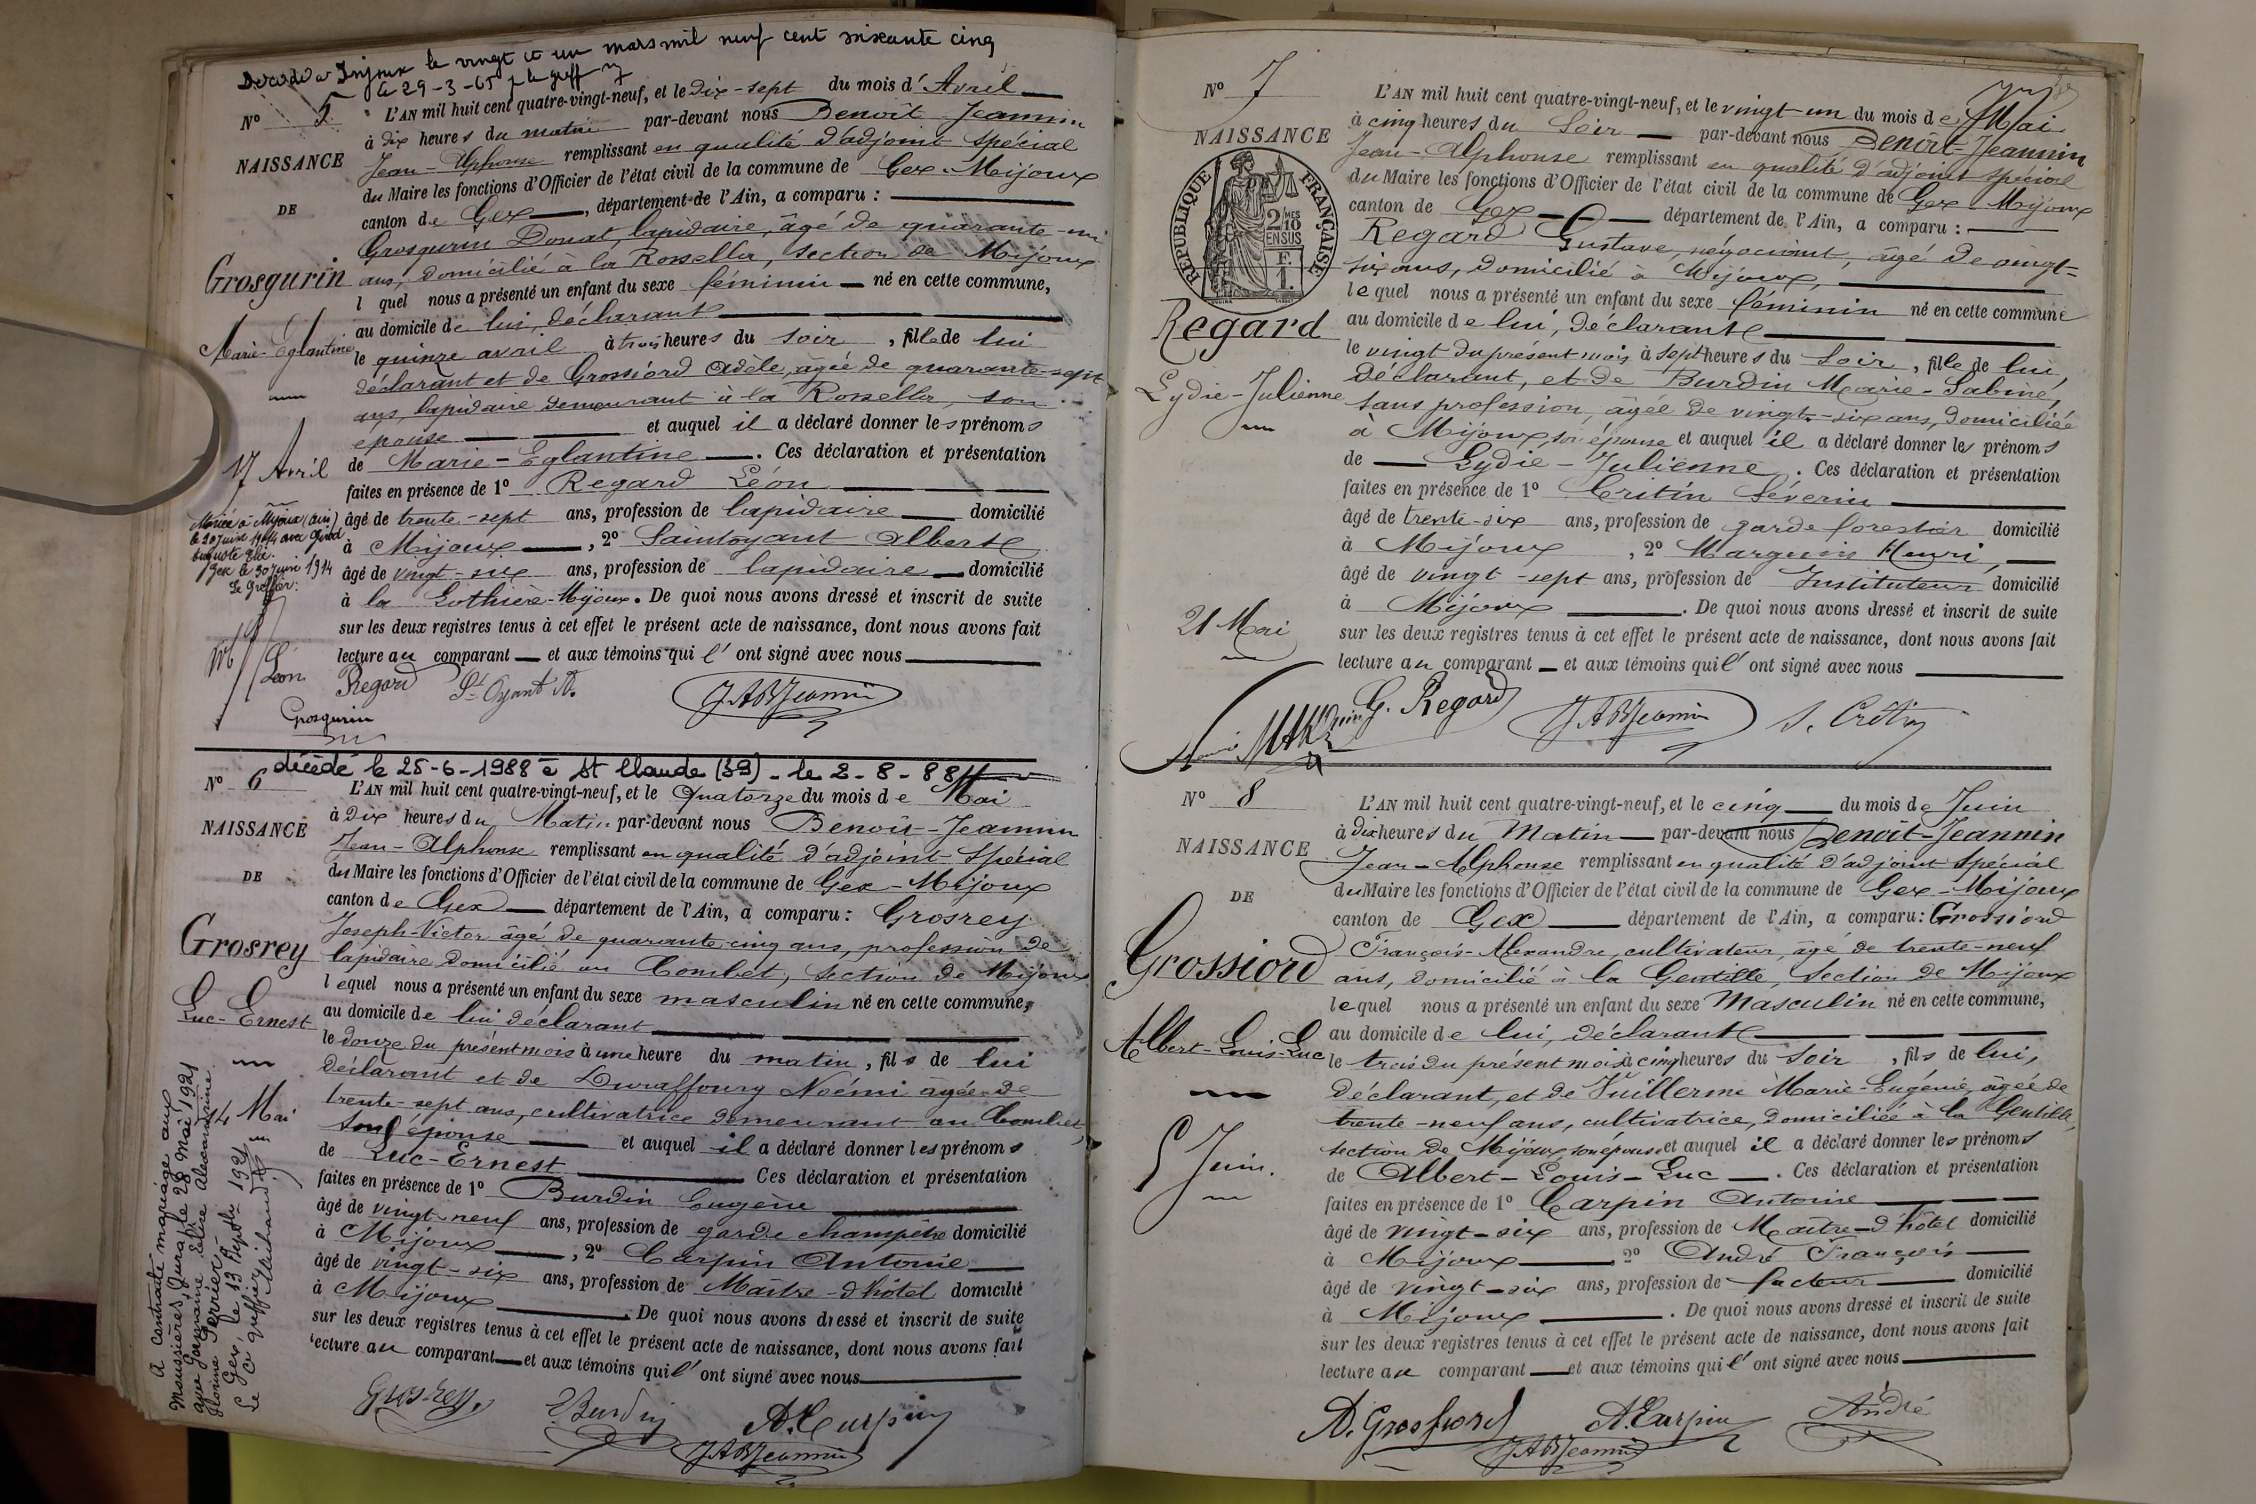 Décédée à Injoux le vingt et un mars mil neuf cent soixante cinq
le 29-3-65 le greff
N° 5
NAISSANCE
DE
Grosgurin
Marie-Eglantine
17 Avril
Mariée à Mijoux (ain)
le 20 juin 1914 avec Girod
Gex le 30 juin 1914
Le Greffier:
L'AN mil huit cent quatre-vingt-neuf, et le dix-sept du mois d'Avril
à dix heures du matin par-devant nous Benoit Jeannin
Jean-Alphonse remplissant en qualité d'adjoint spécial
du Maire les fonctions d'Officier de l'état civil de la commune de Gex-Mijoux
canton de Gex, département de l'Ain, a comparu :
Grosgurin Donat, lapidaire, âgé de quarante-un
ans, domicilié à la Rossella, section de Mijoux
l quel nous a présenté un enfant du sexe féminin né en cette commune,
au domicile de lui, déclarant
le quinze avril à trois heures du soir, fille de lui
déclarant et de Grossiord Adèle, agée de quarante-sept
ans, lapidaire demeurant à la Rossella, son
épouse et auquel il a déclaré donner les prénoms
de Marie-Eglantine. Ces déclaration et présentation
faites en présence de 1° Regard Léon
âgé de trente-sept ans, profession de lapidaire domicilié
à Mijoux, 2° Saintoyant Albert
âgé de vingt-six ans, profession de lapidaire domicilié
à la Lothière-Mijoux. De quoi nous avons dressé et inscrit de suite
sur les deux registres tenus à cet effet le présent acte de naissance, dont nous avons fait
lecture au comparant et aux témoins qui l'ont signé avec nous
Léon Regard St-Oyant A. JABJeannin
Grosgurin
décédé le 25-6-1988 à St Claude (39) - le 2-8-88
N° 6
NAISSANCE
DE
Grosrey
Luc-Ernest
14 Mai
A contracté mariage aux
Moussières, Jura, le 28 mai 1921
avec Germaine Elise Alexandrine
Florine Perrier
Gex, le 13 Septbre 1921
Le Greffier
L'AN mil huit cent quatre-vingt-neuf, et le Quatorze du mois de Mai
à Dix heures du Matin par-devant nous Benoit-Jeannin
Jean-Alphonse remplissant en qualité d'adjoint Spécial
du Maire les fonctions d'Officier de l'état civil de la commune de Gex-Mijoux
canton de Gex département de l'Ain, a comparu : Grosrey
Joseph-Victor âgé de quarante-cinq ans, profession de
lapidaire domicilié au Combet, section de Mijoux
lequel nous a présenté un enfant du sexe masculin né en cette commune,
au domicile de lui déclarant
le douze du présent mois à une heure du matin, fils de lui
déclarant et de Duraffourg Noémi agée de
trente-sept ans, cultivatrice demeurant au Combet,
son épouse et auquel il a déclaré donner les prénoms
de Luc-Ernest Ces déclaration et présentation
faites en présence de 1° Burdin Eugène
âgé de vingt-neuf ans, profession de garde champêtre domicilié
à Mijoux, 2° Carpin Antoine
âgé de vingt-six ans, profession de Maître-d'hôtel domicilié
à Mijoux. De quoi nous avons dressé et inscrit de suite
sur les deux registres tenus à cet effet le présent acte de naissance, dont nous avons fait
lecture au comparant et aux témoins qui l'ont signé avec nous
Grosrey E. Burdin A. Carpin
JABJeannin
N° 7
NAISSANCE
RÉPUBLIQUE FRANÇAISE
2 MES 10
EN SUS
F. 1.
Regard
Lydie-Julienne
21 Mai
L'AN mil huit cent quatre-vingt-neuf, et le vingt-un du mois de Mai
à cinq heures du Soir par-devant nous Benoit-Jeannin
Jean-Alphonse remplissant en qualité d'adjoint spécial
du Maire les fonctions d'Officier de l'état civil de la commune de Gex-Mijoux
canton de Gex département de l'Ain, a comparu :
Regard Gustave, négociant, âgé de vingt-
six ans, domicilié à Mijoux,
lequel nous a présenté un enfant du sexe féminin né en cette commune
au domicile de lui, déclarant
le vingt du présent mois à sept heures du Soir, fille de lui,
déclarant, et de Burdin Marie-Sabine,
sans profession, âgée de vingt-six ans, domiciliée
à Mijoux, son épouse et auquel il a déclaré donner les prénoms
de Lydie-Julienne. Ces déclaration et présentation
faites en présence de 1° Critin Séverin
âgé de trente-six ans, profession de garde forestier domicilié
à Mijoux, 2° Marguin Henri,
âgé de vingt-sept ans, profession de Instituteur domicilié
à Mijoux. De quoi nous avons dressé et inscrit de suite
sur les deux registres tenus à cet effet le présent acte de naissance, dont nous avons fait
lecture au comparant et aux témoins qui l'ont signé avec nous
G. Regard JABJeannin S. Crétin
N° 8
NAISSANCE
DE
Grossiord
Albert-Louis-Luc
5 Juin.
L'AN mil huit cent quatre-vingt-neuf, et le cinq du mois de Juin
à dix heures du Matin par-devant nous Benoit-Jeannin
Jean-Alphonse remplissant en qualité d'adjoint spécial
du Maire les fonctions d'Officier de l'état civil de la commune de Gex-Mijoux
canton de Gex département de l'Ain, a comparu : Grossiord
François-Alexandre, cultivateur, âgé de trente-neuf
ans, domicilié à la Gentille, Section de Mijoux
lequel nous a présenté un enfant du sexe Masculin né en cette commune,
au domicile de lui, déclarant
le trois du présent mois à cinq heures du soir, fils de lui,
déclarant, et de Vuillerme Marie-Eugénie, âgée de
trente-neuf ans, cultivatrice, domiciliée à la Gentille,
section de Mijoux, son épouse et auquel il a déclaré donner les prénoms
de Albert-Louis-Luc. Ces déclaration et présentation
faites en présence de 1° Carpin Antoine
âgé de vingt-six ans, profession de Maître-d'hôtel domicilié
à Mijoux 2° André François
âgé de vingt-six ans, profession de facteur domicilié
à Mijoux. De quoi nous avons dressé et inscrit de suite
sur les deux registres tenus à cet effet le présent acte de naissance, dont nous avons fait
lecture au comparant et aux témoins qui l'ont signé avec nous
A. Grossiord A. Carpin André
JABJeannin